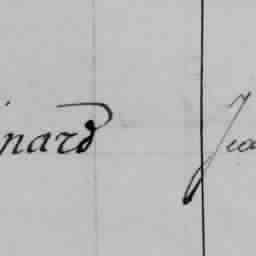 inard Jea